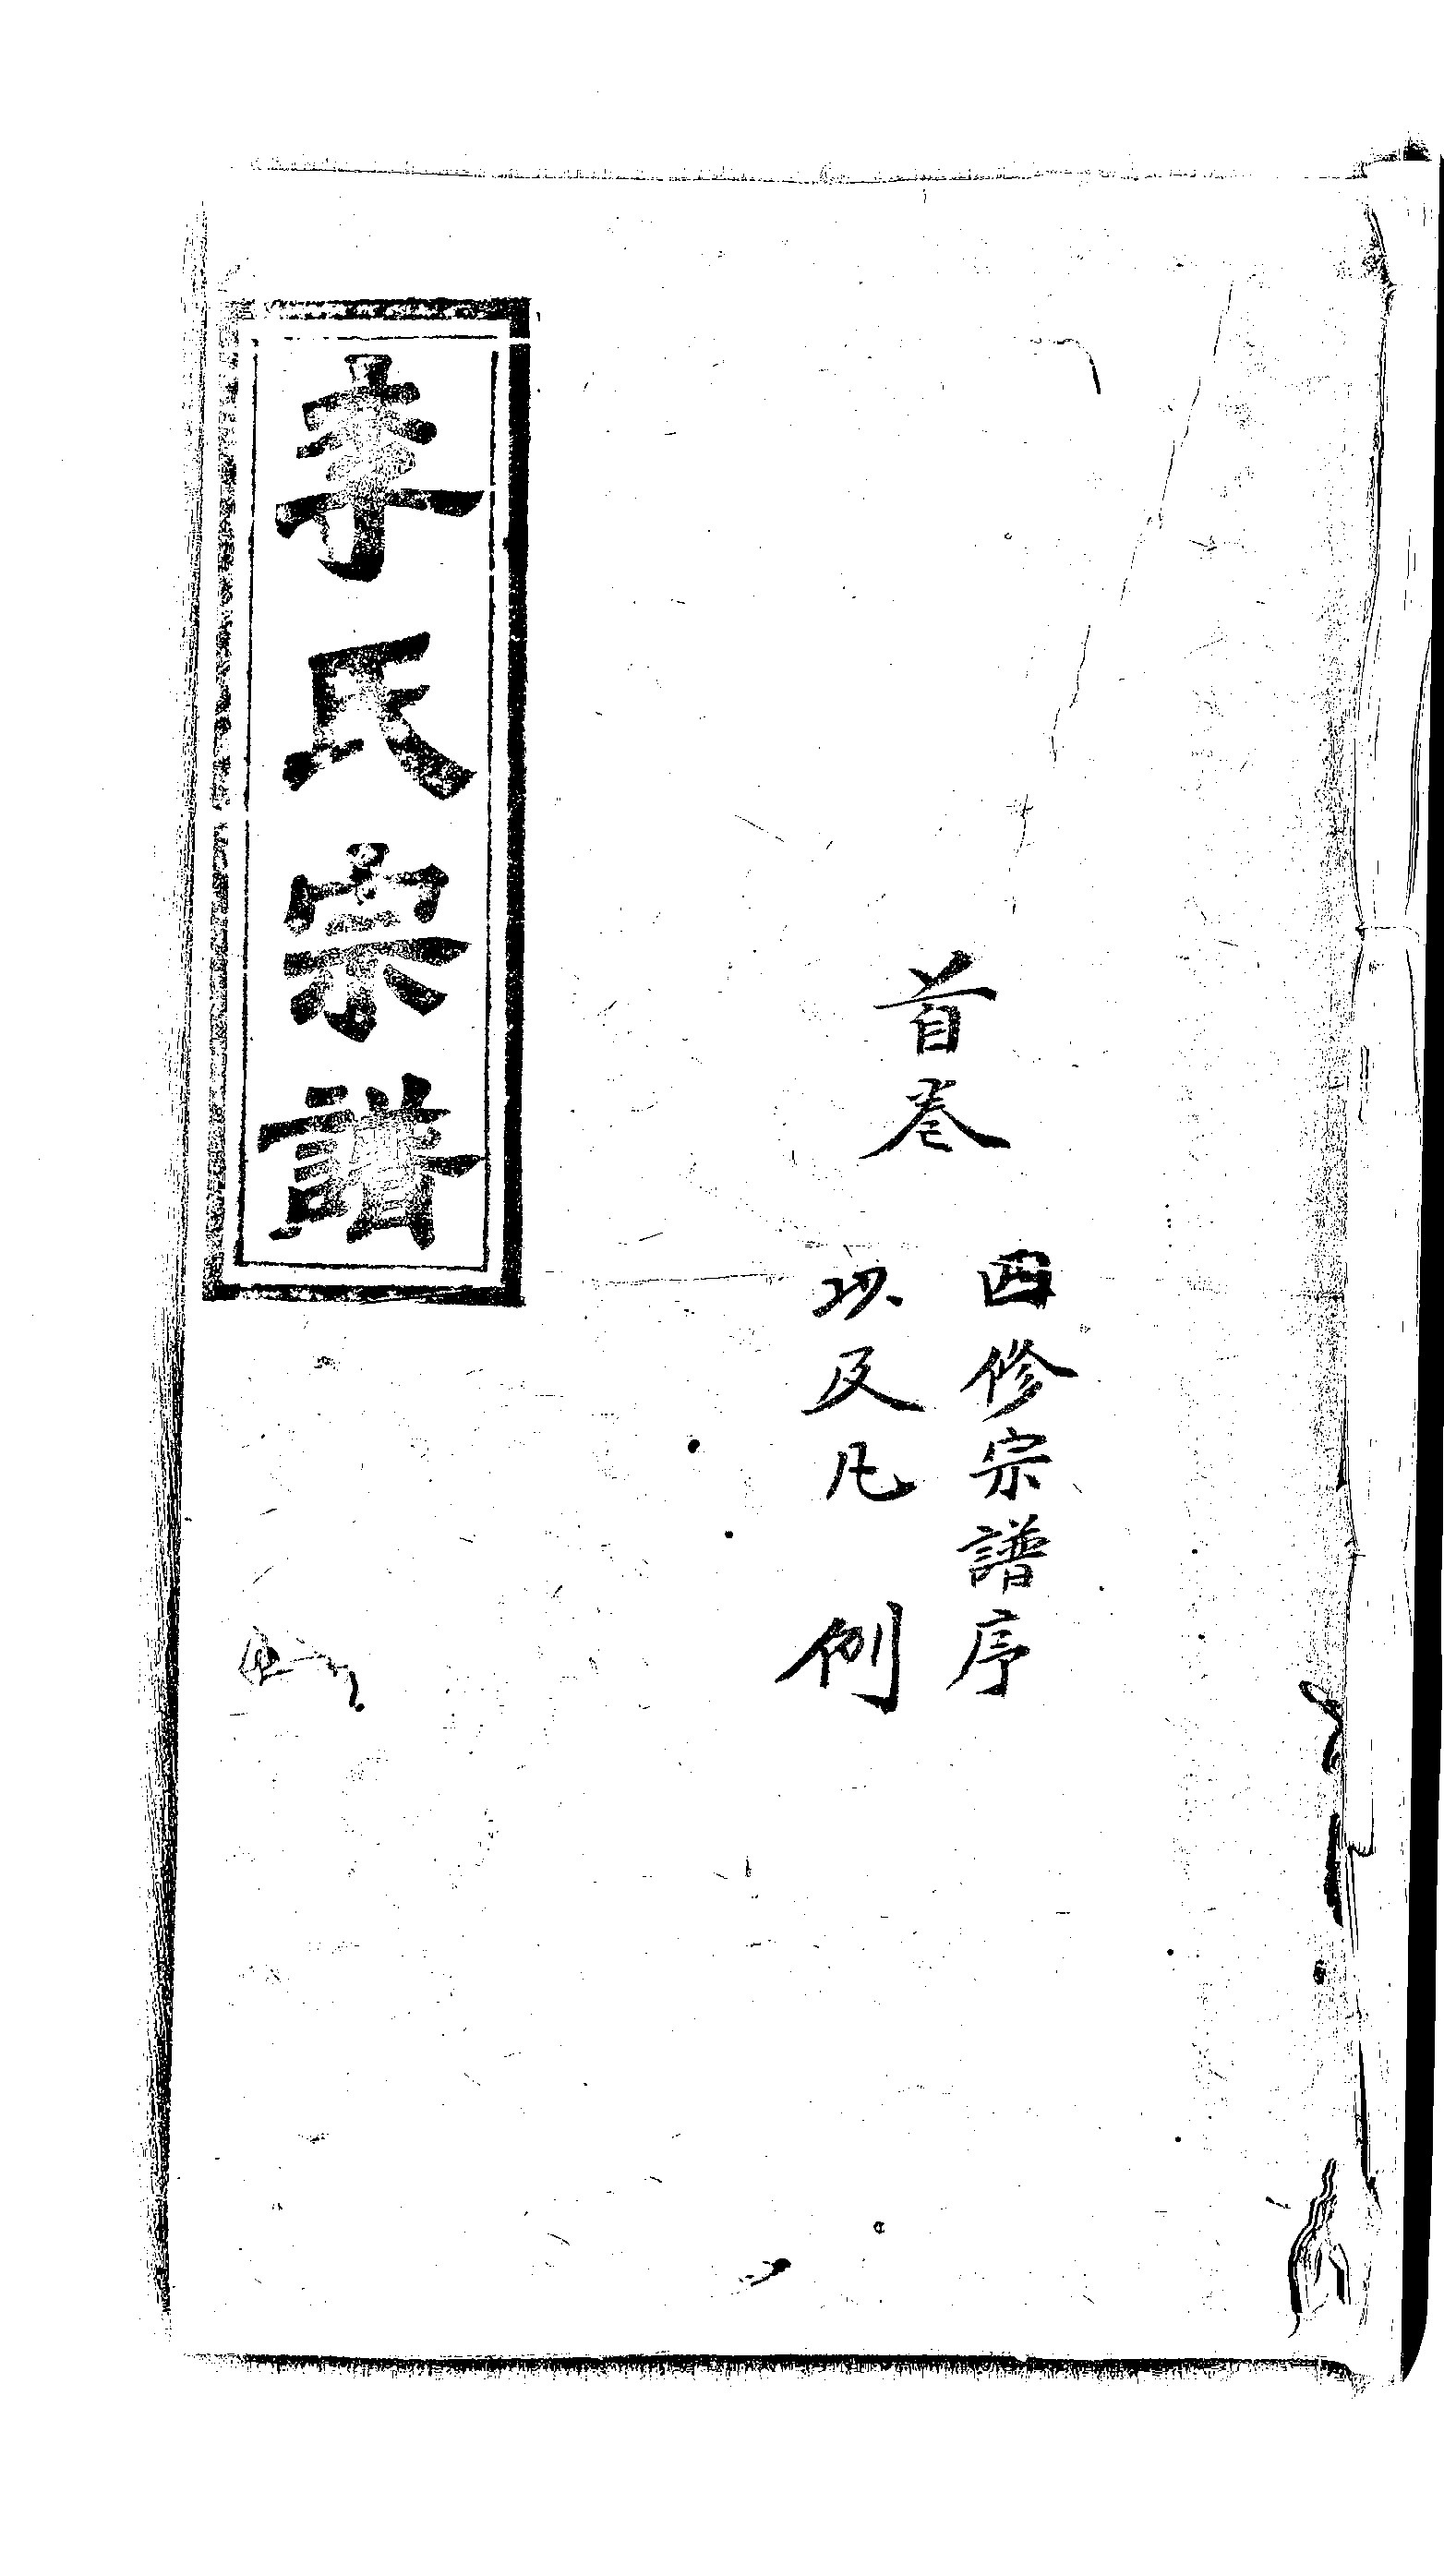 首卷
四修宗譜序
以及凡例
李氏宗譜